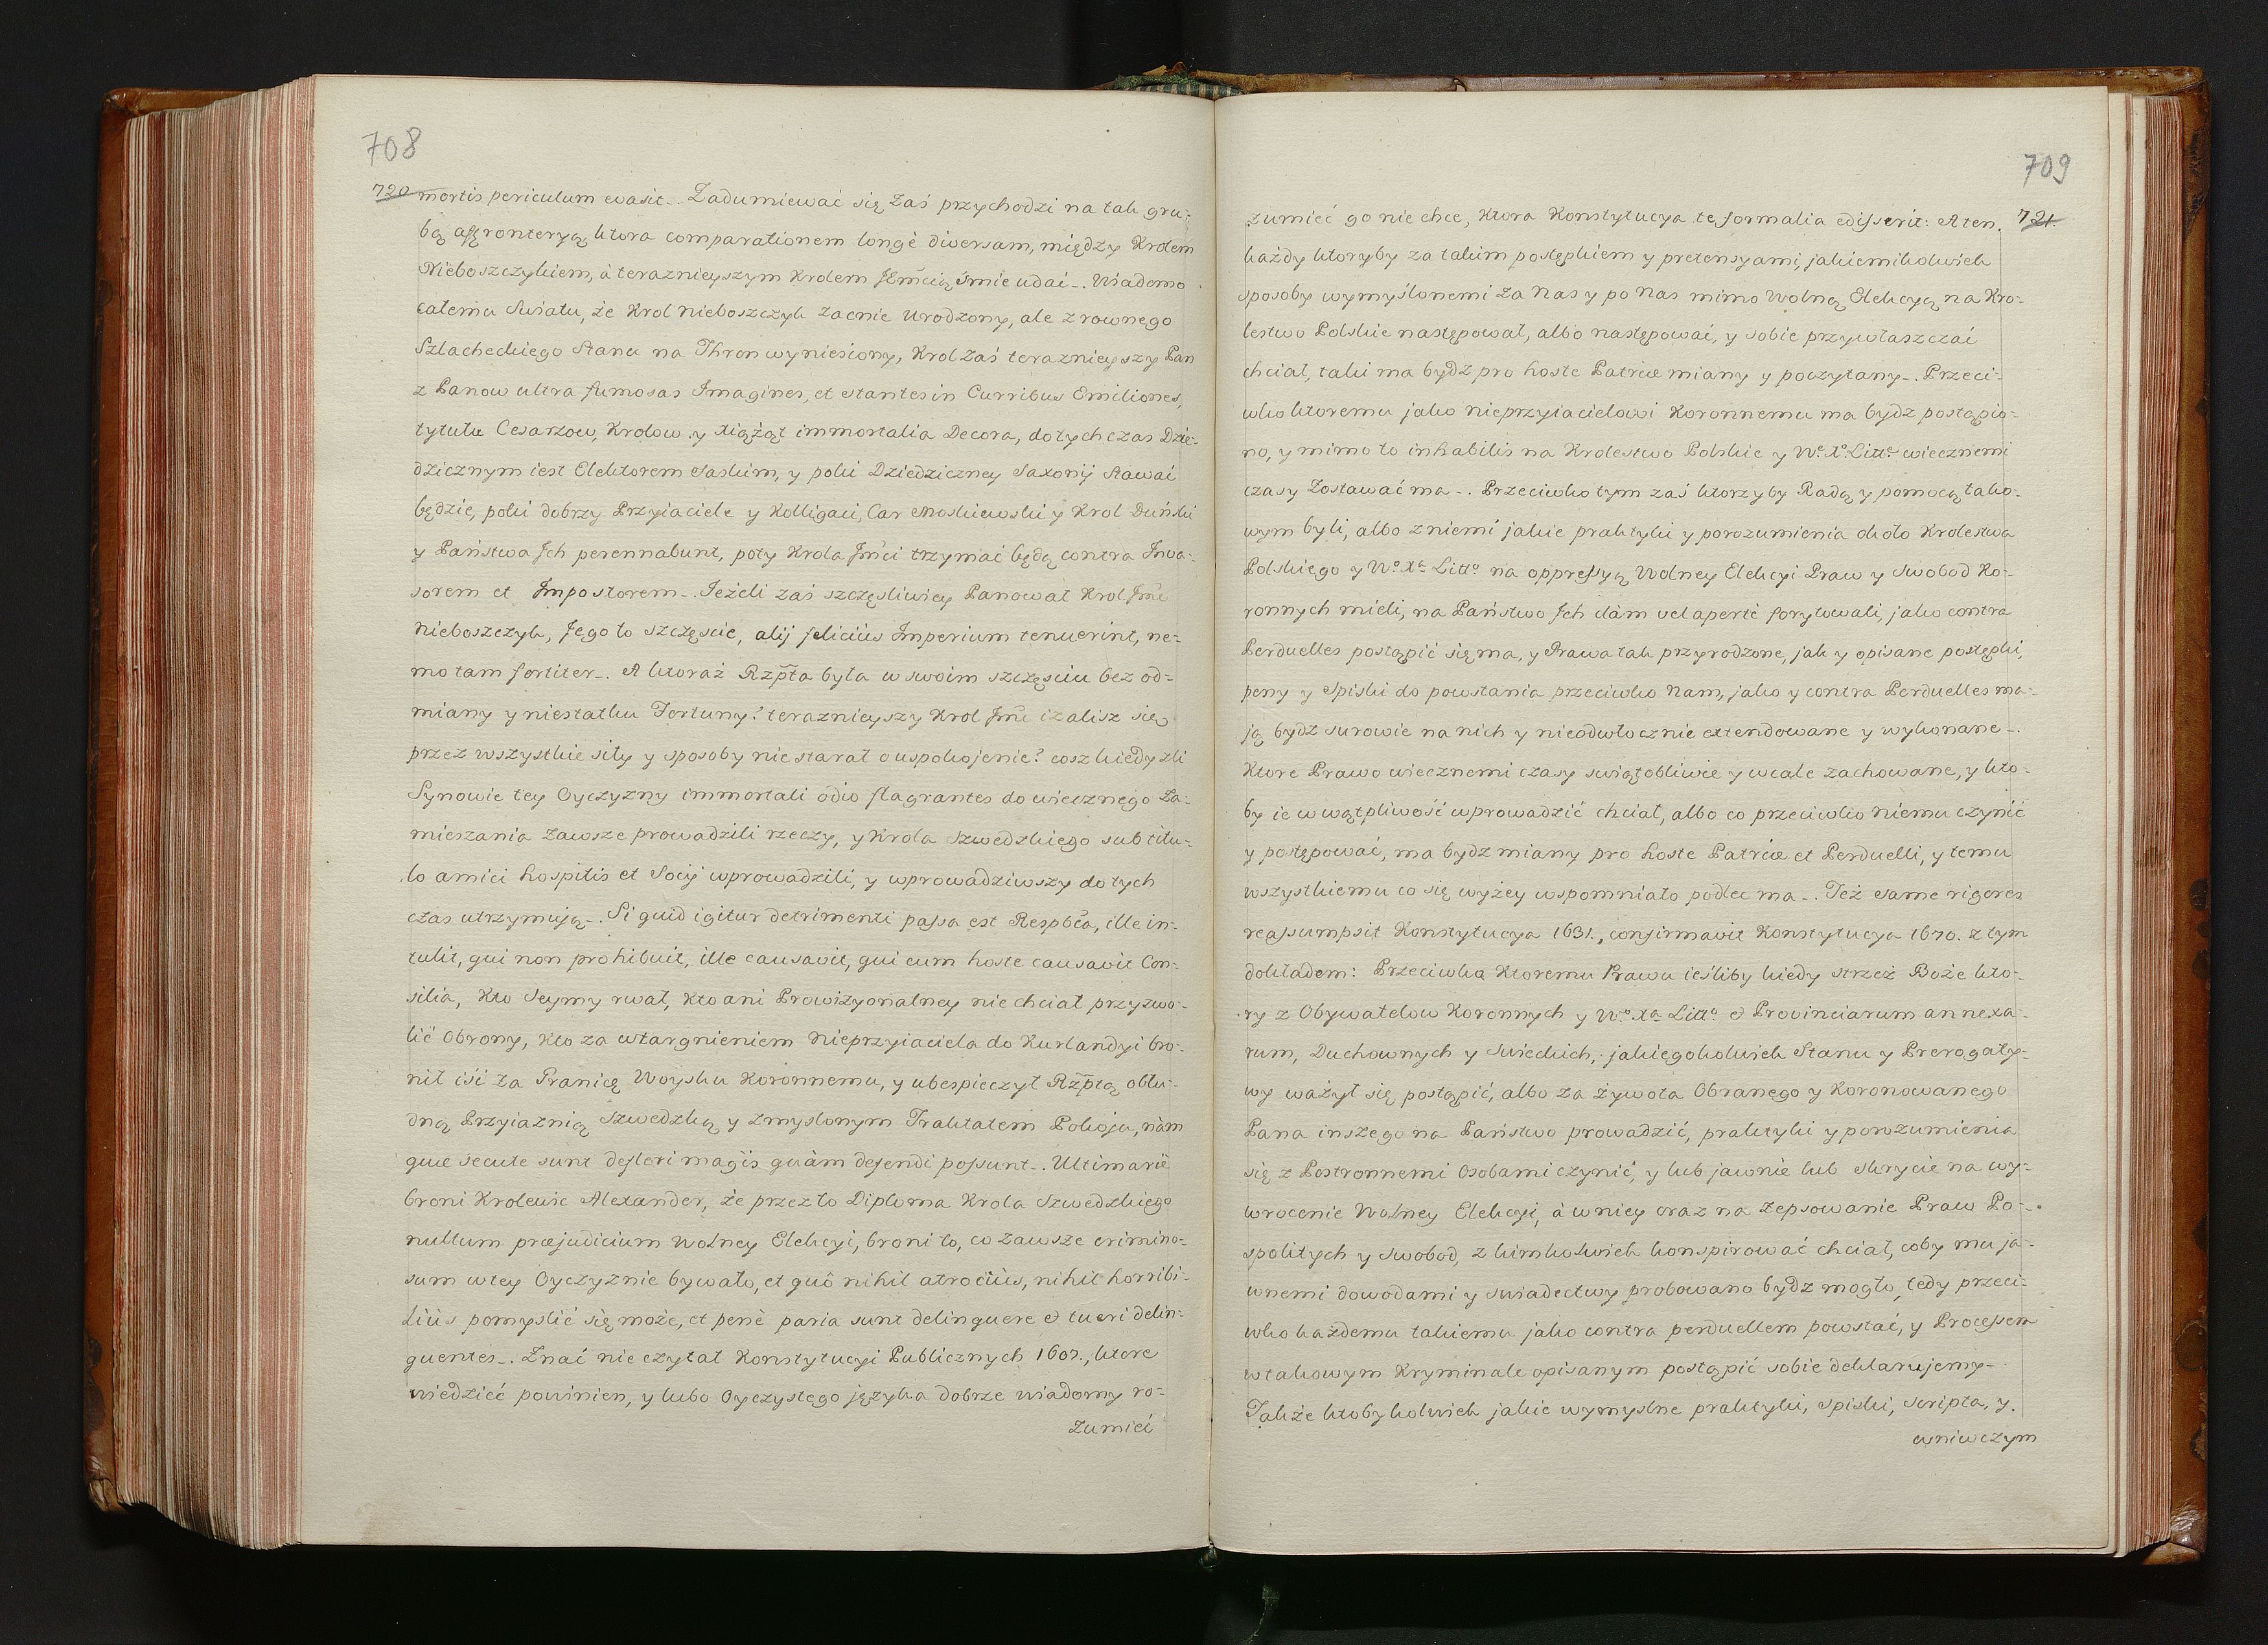 708
720 mortis periculum evasit_. Zadumiewać się zaś przychodzi na tak gru=
bą affronteryą, ktora comparationem longè diversam, między Krolem
Nieboszczykiem, à teraznieyszym Krolem JEm̃cią śmie udać_. Wiadomo
całemu Swiatu, że Krol nieboszczyk zacnie urodzony, ale z rownego
Szlacheckiego Stanu na Thron wyniesiony, Krol zaś teraznieyszy Pan
z Panow ultra fumosas Imagines, et stantes in Curribus Emiliones,
tytułu Cesarzow, Krolow y Xiążąt immortalia Decora, dotychczas Dzie=
dzicznym iest Elektorem Saskim, y poki Dziedziczney Saxonij stawać
będzie, poki dobrzy Przyiaciele y Kolligaci, Car Moskiewski y Krol Duński
y Państwa Jch perennabunt, poty Krola Jm̃ci trzymać będą contra Inva=
sorem et Impostorem_. Jeżeli zaś szczęsliwiey Panował Krol Jm̃ć
nieboszczyk, Jego to szczęscie, alij feliciùs Imperium tenuerint, ne=
mo tam fortiter_. A ktoraż Rzp̃ta była w swoim szczęsciu bez od=
miany y niestatku Fortuny? teraznieyszy Krol Jm̃ć izalisz się
przez wszystkie siły y sposoby nie starał o uspokojenie? cosz kiedy zli
Synowie tey Oyczyzny immortali odio flagrantes do wiecznego Za=
mieszania zawsze prowadzili rzeczy, y Krola Szwedzkiego sub titu=
lo amici hospitis et Socij wprowadzili, y wprowadziwszy do tych
czas utrzymują_. Si quid igitur detrimenti passa est Respb̃ca, ille in=
tulit, qui non prohibuit, ille causavit, qui cum hoste causavit Con=
silia, Kto Seymy rwał, Kto ani Prowizyonalney nie chciał przyzwo=
lić Obrony, Kto za wtargnieniem nieprzyiaciela do Kurlandyi bro=
nił iść za Granicę Woysku Koronnemu, y ubespieczył Rzp̃tą obłu=
dną Przyiaznią Szwedzką y zmyslonym Traktatem Pokoju, nàm
quæ secutæ sunt defleri magìs quàm defendi possunt_. Ultimariè
broni Krolewic Alexander, że przez to Diploma Krola Szwedzkiego
nullum præjudicium wolney Elekcyi, broni to, co zawsze crimino=
sum w tey Oyczyznie bywało, et quô nihil atrociùs, nihil horribi=
liùs pomyslić się może, et penè paria sunt delinquere et tueri delin=
quentes_. Znać nie czytał Konstytucyi Publicznych 1607., ktore
wiedzieć powinien, y lubo Oyczystego języka dobrze wiadomy ro=
zumieć
709
zumieć go nie chce, ktora Konstytucya te formalia edisserit: A ten. 721.
każdy ktoryby za takim postępkiem y pretensyami, jakiemikolwiek
sposoby wymyślonemi za Nas y po Nas mimo Wolną Elekcyą na Kro=
lestwo Polskie następował, albo następować, y sobie przywłaszczać
chciał, taki ma bydz pro hoste Patriæ miany y poczytany_. Przeci=
wko ktoremu jako nieprzyiacielowi Koronnemu ma bydz postąpio=
no, y mimo to inhabilis na Krolestwo Polskie y Wº Xº Littº wiecznemi
czasy zostawać ma_. Przeciwko tym zaś ktorzyby Radą y pomocą tako=
wym byli, albo z niemi jakie praktyki y porozumienia około Krolestwa
Polskiego y Wº Xª Littº na oppressyą Wolney Elekcyi Praw y Swobod Ko=
ronnych mieli, na Państwo Jch clàm vel apertè forytowali, jako contra
Perduelles postąpić się ma, y Prawa tak przyrodzone, jak y opisane postępki,
peny y Spiski do powstania przeciwko nam, jako y contra Perduelles ma=
ją bydz surowie na nich y nieodwłocznie extendowane y wykonane_.
Ktore Prawo wiecznemi czasy swiątobliwie y wcale zachowane, y kto=
by ie w wątpliwość wprowadzić chciał, albo co przeciwko niemu czynić
y postępować, ma bydz miany pro hoste Patriæ et Perduelli, y temu
wszystkiemu co się wyżey wspomniało podlec ma_. Też same rigores
reassumpsit Konstytucya 1631., confirmavit Konstytucya 1670. z tym
dokładem: Przeciwko Ktoremu Prawu ieśliby kiedy strzeż Boże kto=
ry z Obywatelow Koronnych y Wº Xª Littº et Provinciarum annexa=
rum, Duchownych y Swieckich, jakiegokolwiek Stanu y Prerogaty=
wy ważył się postąpić, albo za żywota Obranego y Koronowanego
Pana inszego na Państwo prowadzić, praktyki y porozumienia
się z Postronnemi Osobami czynić, y lub jawnie lub skrycie na wy=
wrocenie Wolney Elekcyi, à w niey oraz na zepsowanie Praw Po=
spolitych y Swobod, z kimkolwiek konspirować chciał, coby mu ja=
wnemi dowodami y swiadectwy probowano bydz mogło, tedy przeci=
wko każdemu takiemu jako contra perduellem powstać, y Processem
w takowym Kryminale opisanym postąpić sobie deklarujemy_.
Także ktobykolwiek jakie wymyslne praktyki, spiski, scripta, y.
wniwczym